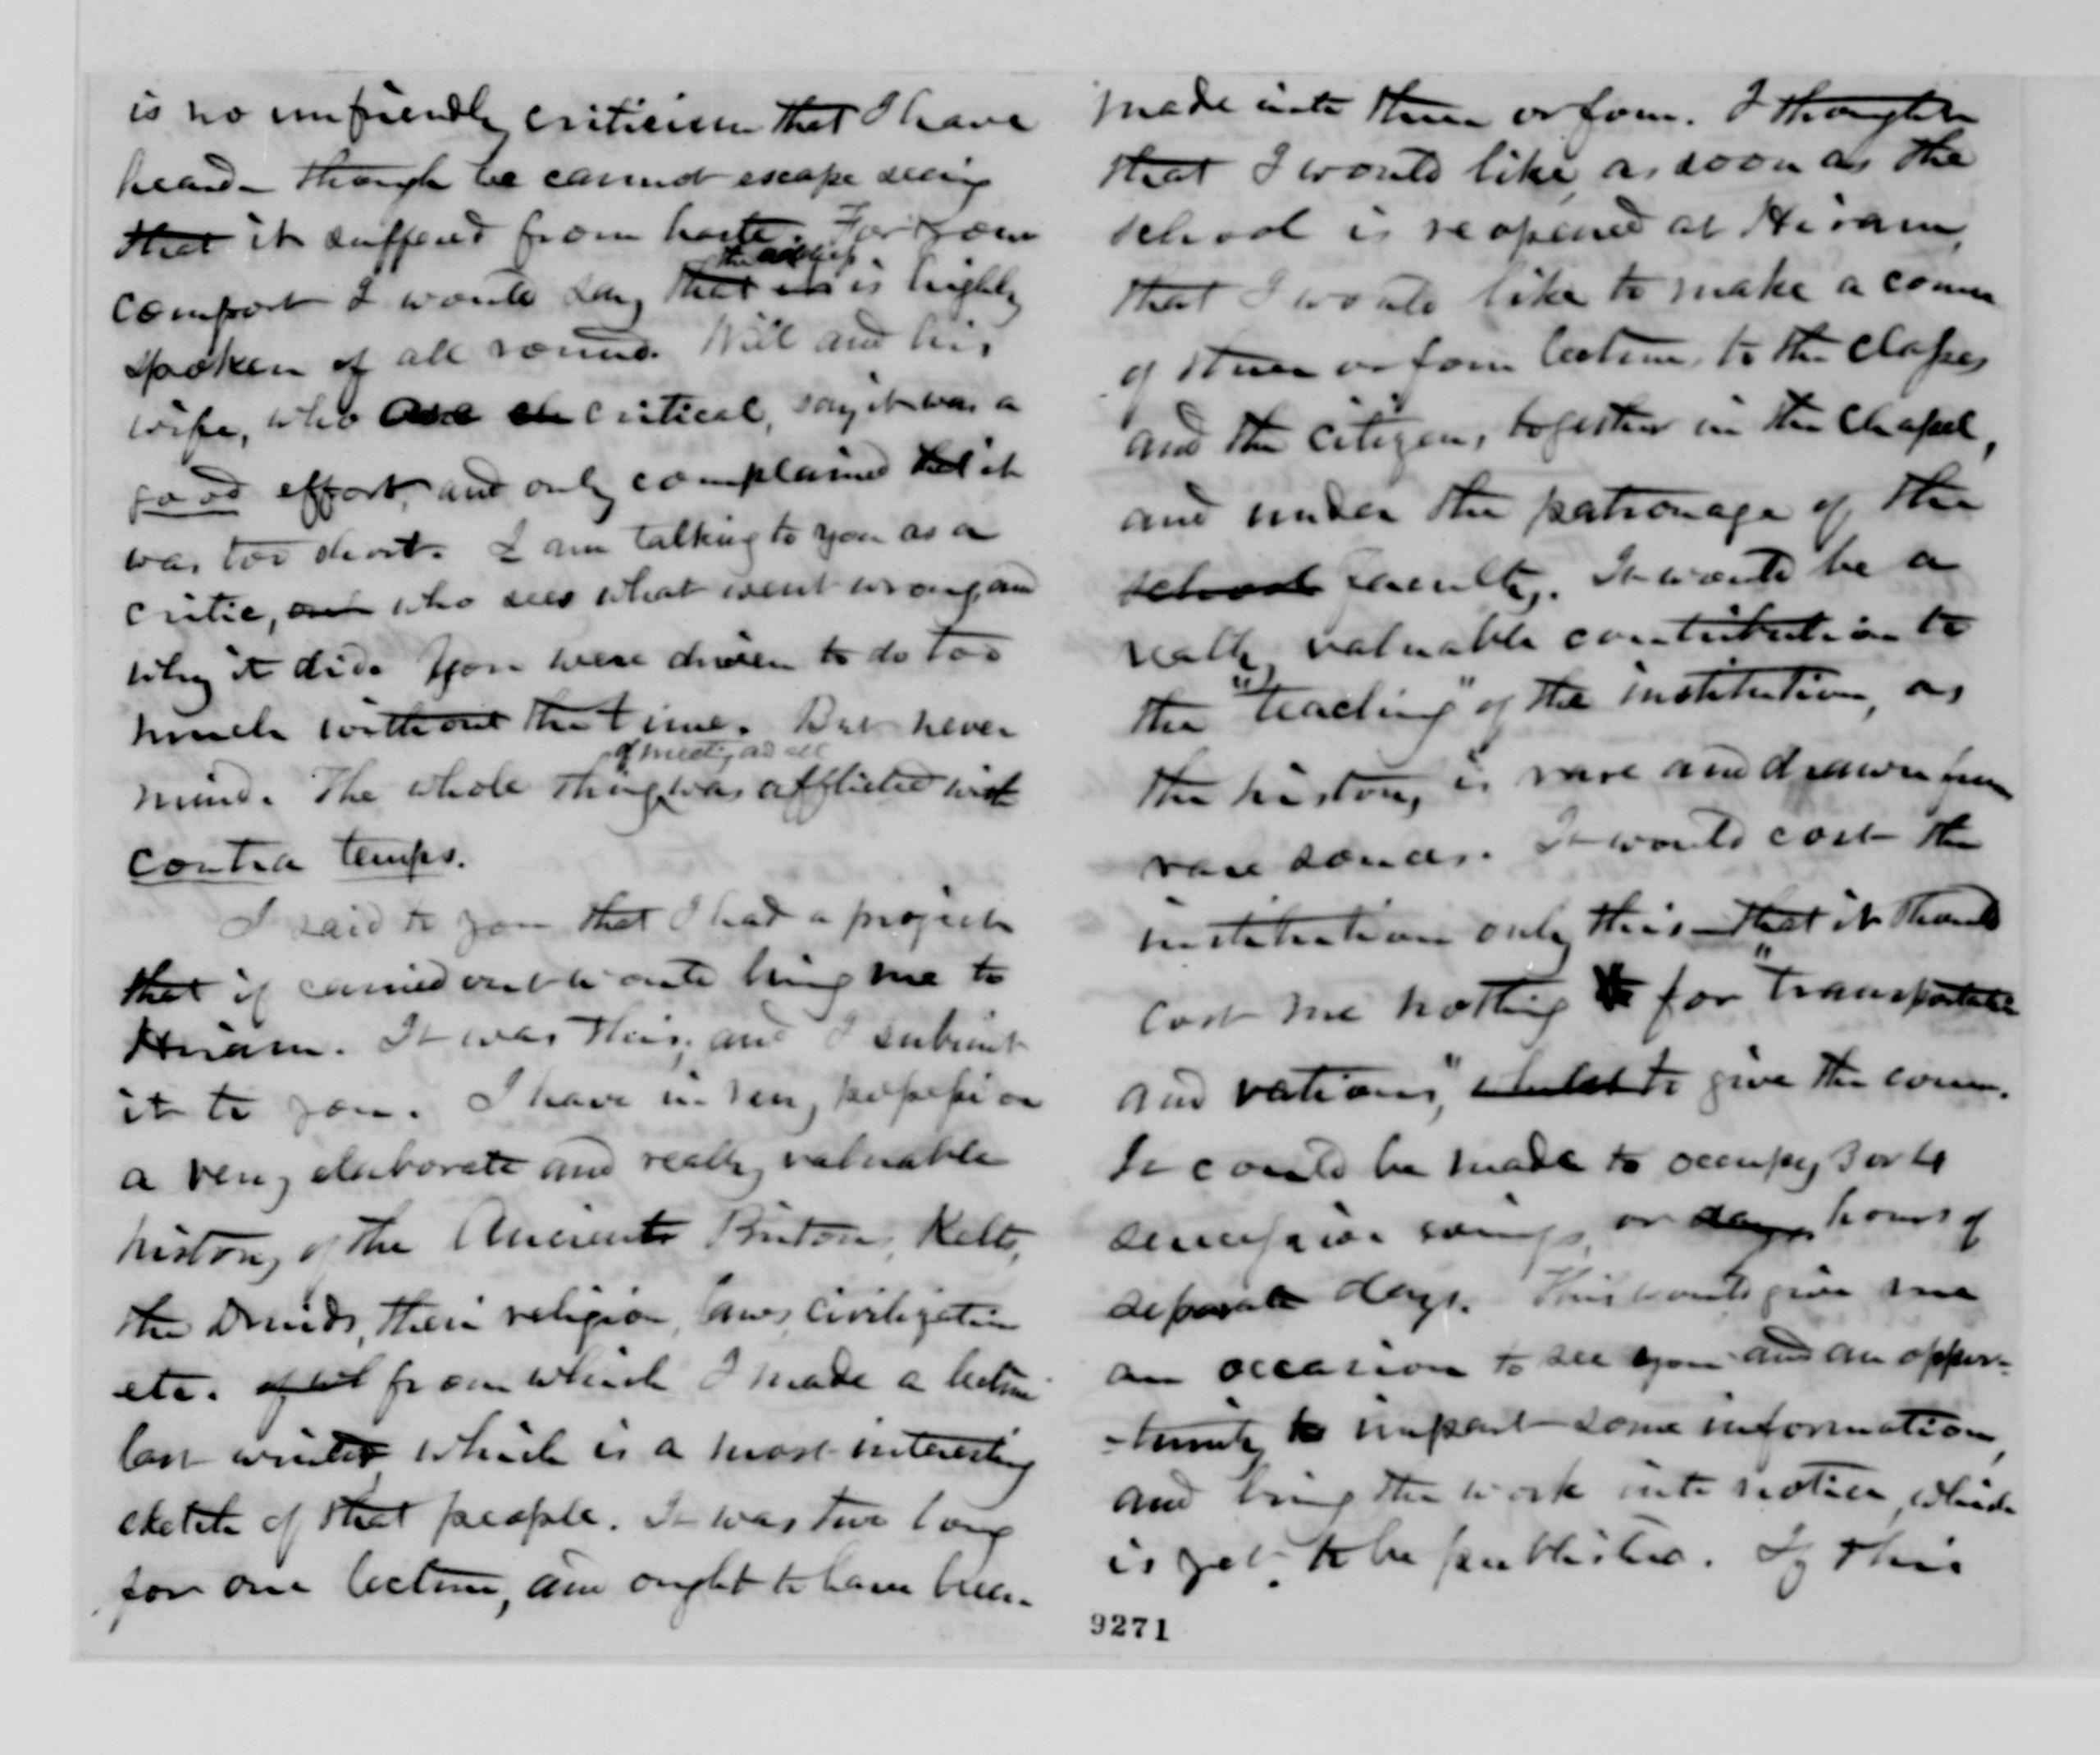 is no unfriendly criticism that I have
heard - though we cannot escape seeing
that it suffered from haste. For your
the address
comfort I would say that it is highly
spoken of all round. Will and his
wife, who are critical, say it was a
good effort, and only complained that it
was too short. I am talking to you as a
critic, and who sees what went wrong, and
why it did. You were driven to do too
much without the time. But never
of meeting and all
mind. The whole thing was afflicted with
contra temps.
I said to you that I had a project
that if carried out would bring me to
Hiram. It was this, and I submit
it to you. I have in my possession
a very elaborate and really valuable
history of the Ancient Britons, Kelts,
the Druids, their religion, laws, civilization
etc. from which I made a lecture
last winter which is a most interesting
sketch of that people. It was two long
for one lecture, and ought to have been
made into three or four. I thought
that I would like, as soon as the
school is reopened at Hiram,
that I would like to make a course
of three or four lectures to the classes
and the citizens, together in the chapel,
and under the patronage of the
school faculty. It would be a
really valuable contribution to
the "teaching" of the institution, as
the history is rare and drawn from
rare sources. It would cost the
institution only this - that it should
cost me nothing for "transportation
and rations," to give the course.
It could be made to occupy 3 or 4
successive evenings, or days hours of
separate days. This would give me
an occasion to see you and an oppor-
-tunity to impart some information,
and bring the work into notice, which
is yet to be published. If this
9271